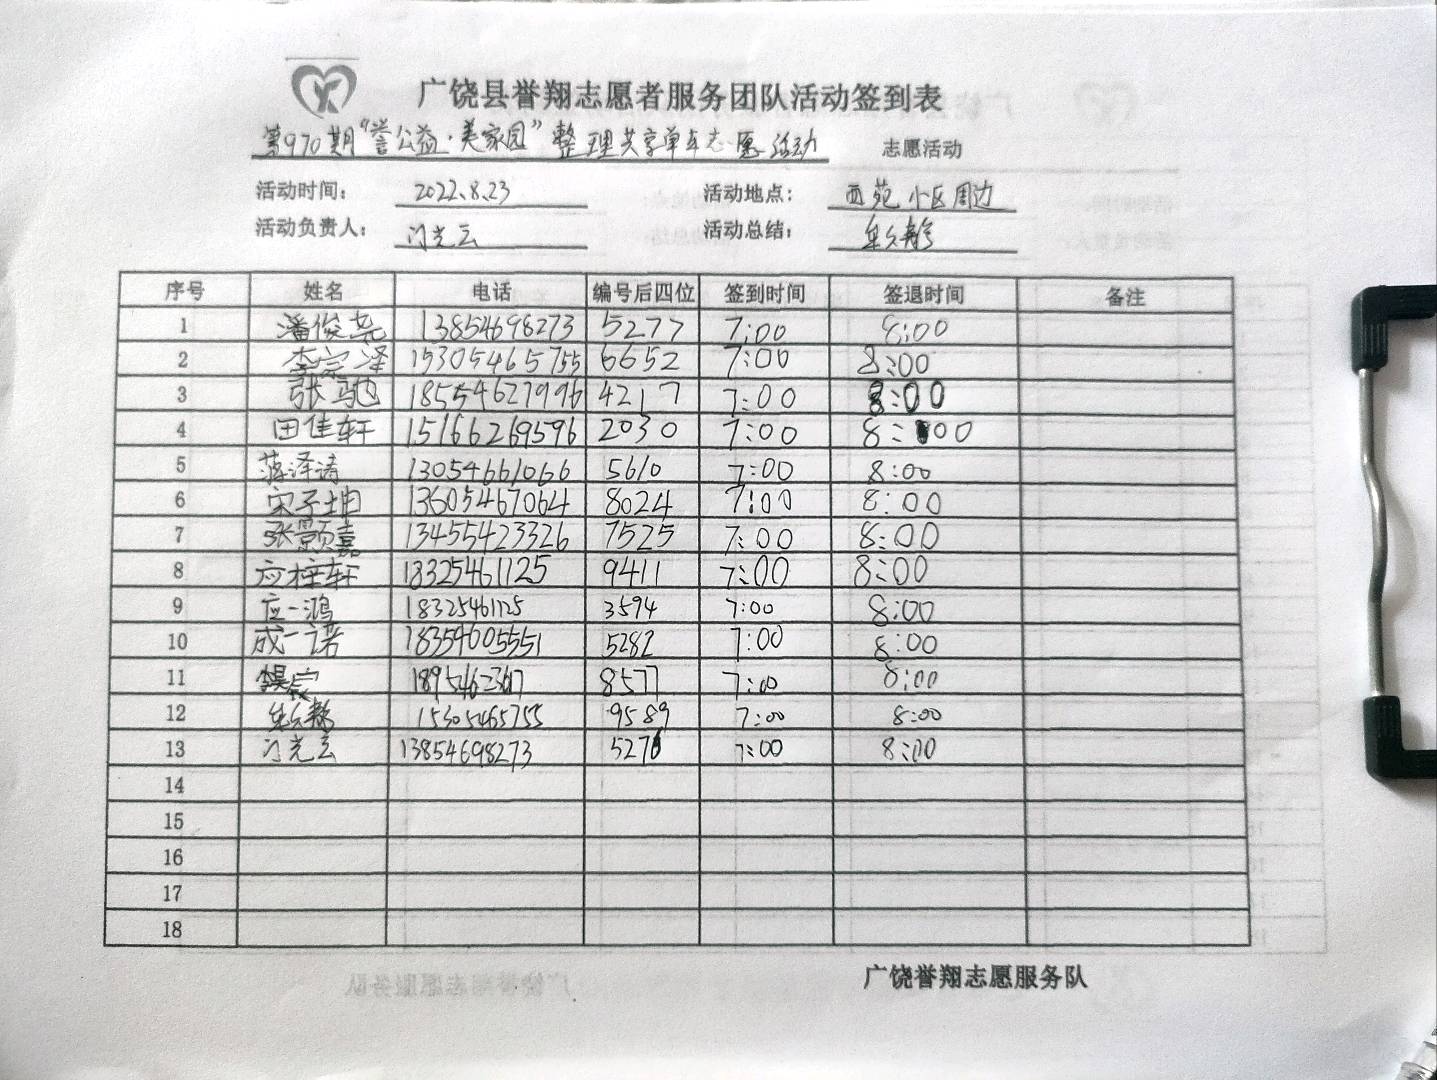 广饶县誉翔志愿者服务团队活动签到表
第970期“誉公益·美家园”整理共享单车志愿活动 志愿活动
活动时间： 2022.8.23 活动地点： 西苑小区周边
活动负责人： 门光云 活动总结：
序号 姓名 电话 编号后四位 签到时间 签退时间 备注
1 潘俊尧 13854698273 5277 7:00 8:00
2 李宗泽 15305465755 6652 7:00 8:00
3 张驰 18554627996 4217 7:00 8:00
4 田佳轩 15166269596 2030 7:00 8:00
5 蒋泽涛 13054661066 5610 7:00 8:00
6 宋子坤 13605467064 8024 7:00 8:00
7 张颢嘉 13455423326 7525 7:00 8:00
8 应梓轩 18325461125 9411 7:00 8:00
9 应一鸿 18325461125 3594 7:00 8:00
10 成一诺 18354605551 5282 7:00 8:00
11 8577 7:00 8:00
12 15305465755 9589 7:00 8:00
13 门光云 13854698273 5276 7:00 8:00
14
15
16
17
18
广饶誉翔志愿服务队